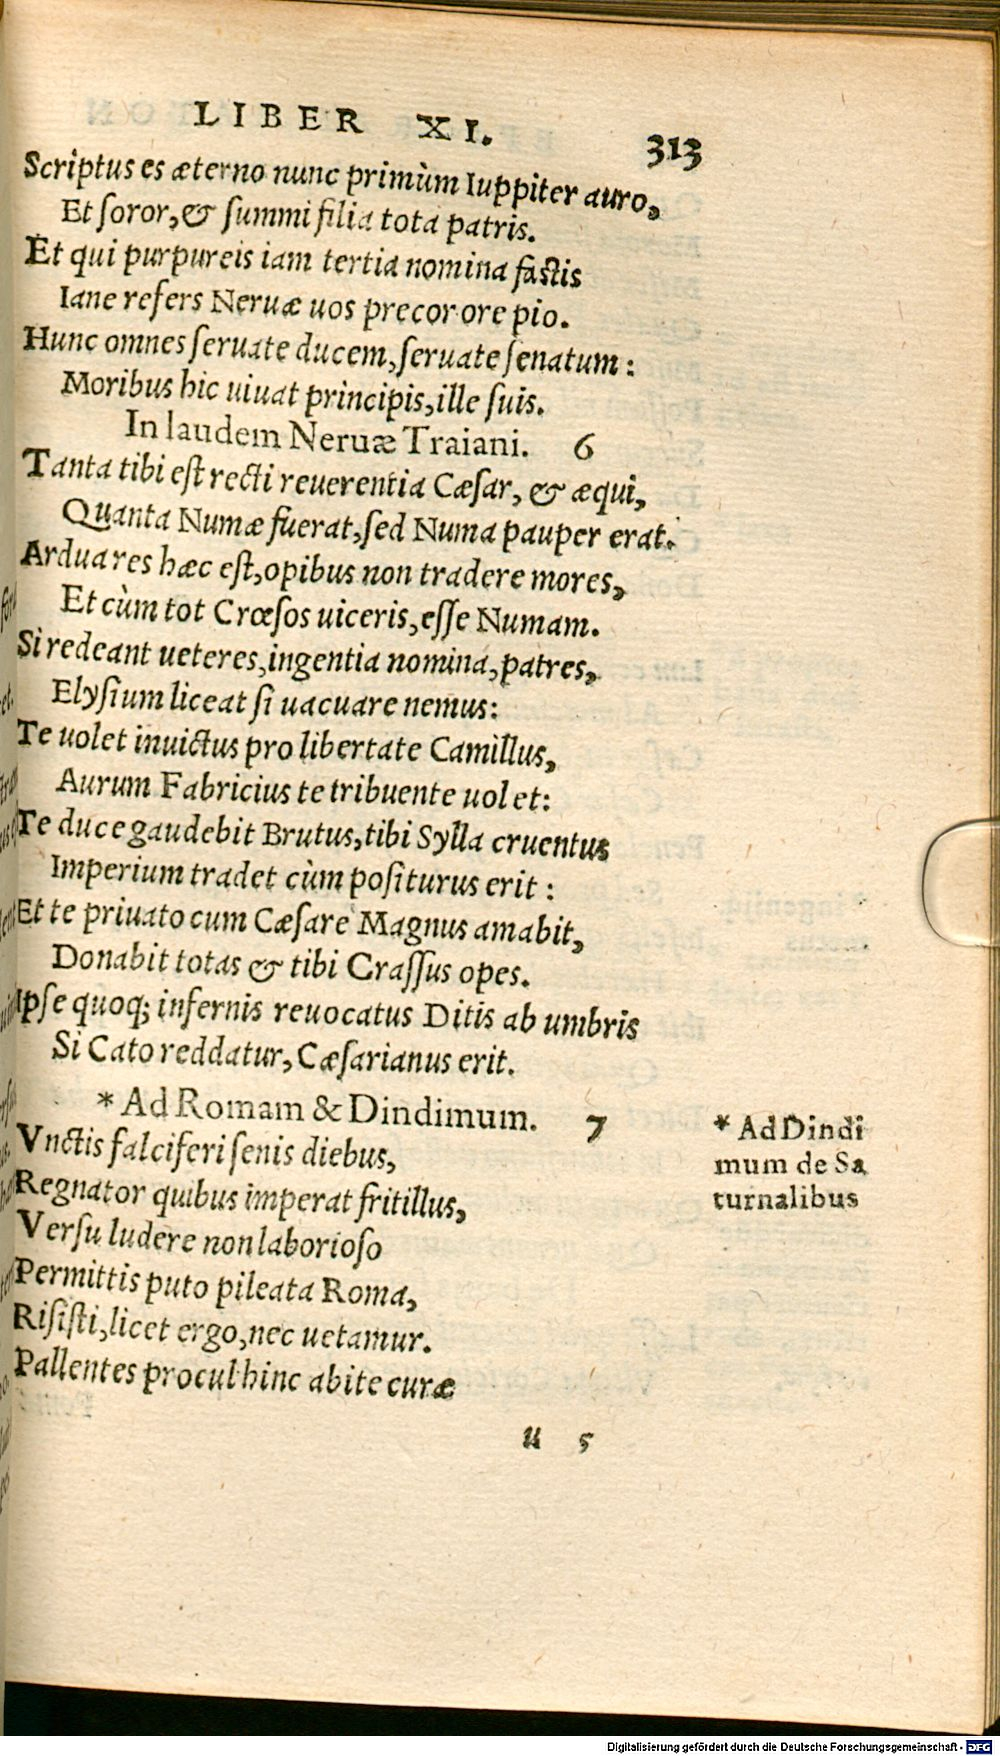 LIBER XI. 313
Scriptus es æterno nunc primùm Iuppiter auro,
Et soror, & summi filia tota patris.
Et qui purpureis iam tertia nomina fastis
Iane refers Neruæ uos precor ore pio.
Hunc omnes seruate ducem, seruate senatum:
Moribus hic uiuat principis, ille suis.
In laudem Neruæ Traiani. 6
Tanta tibi est recti reuerentia Cæsar, & æqui,
Quanta Numæ fuerat, sed Numa pauper erat.
Ardua res hæc est, opibus non tradere mores,
Et cùm tot Crœsos uiceris, esse Numam.
Si redeant ueteres, ingentia nomina, patres,
Elysium liceat si uacuare nemus:
Te uolet inuictus pro libertate Camillus,
Aurum Fabricius te tribuente uolet:
Te duce gaudebit Brutus, tibi Sylla cruentus
Imperium tradet cùm positurus erit:
Et te priuato cum Cæsare Magnus amabit,
Donabit totas & tibi Crassus opes.
Ipse quoq; infernis reuocatus Ditis ab umbris
Si Cato reddatur, Cæsarianus erit.
* Ad Romam & Dindimum. 7
Vnctis falciferi senis diebus,
Regnator quibus imperat fritillus,
Versu ludere non laborioso
Permittis puto pileata Roma,
Risisti, licet ergo, nec uetamur.
Pallentes procul hinc abite curæ
* Ad Dindi
mum de Sa
turnalibus
u 5
Digitalisierung gefördert durch die Deutsche Forschungsgemeinschaft - DFG